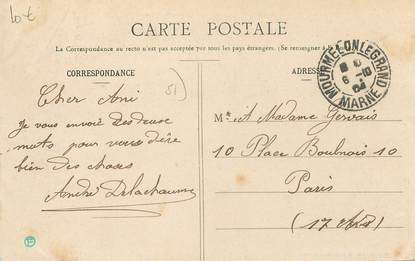 10 €
CARTE POSTALE
La Correspondance au recto n'est pas acceptée par tous les pays étrangers. (Se renseigner à
CORRESPONDANCE
ADRESSE
MOURMELON LE GRAND
6 -10
MARNE
51
Cher Ami
Je vous envoie ces deux
mots pour vous dire
bien des choses
André Delachaume
Mr et Madame Gervais
10 Place Boulnois 10
Paris
(17 Ar)